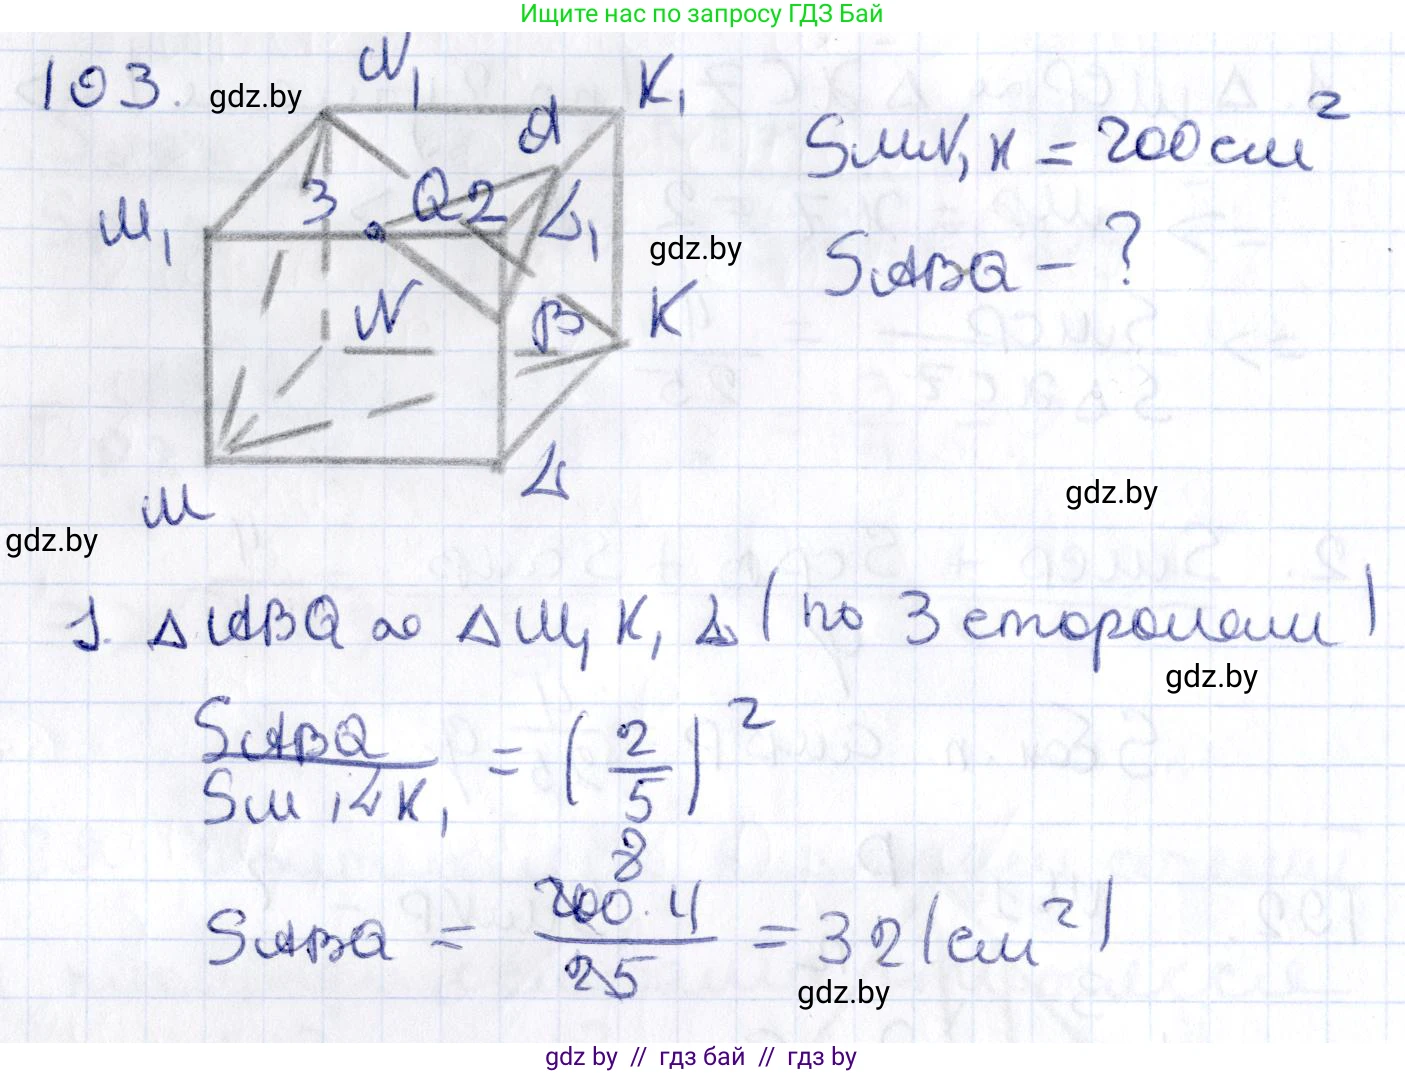 Ищите нас по запросу ГДЗ Бай
103. gdz.by
N₁ K₁
A
M₁ 3 Q 2 L₁
N B K
M L
S MN₁K = 200 см²
gdz.by
S ABQ - ?
gdz.by
gdz.by
1. △ABQ ∞ △M₁K₁L (по 3 сторонам)
gdz.by
S ABQ / S M₁LK₁ = (2/5)²
8
S ABQ = 200·4 / 25 = 32 (см²)
gdz.by
gdz by // гдз бай // гдз by